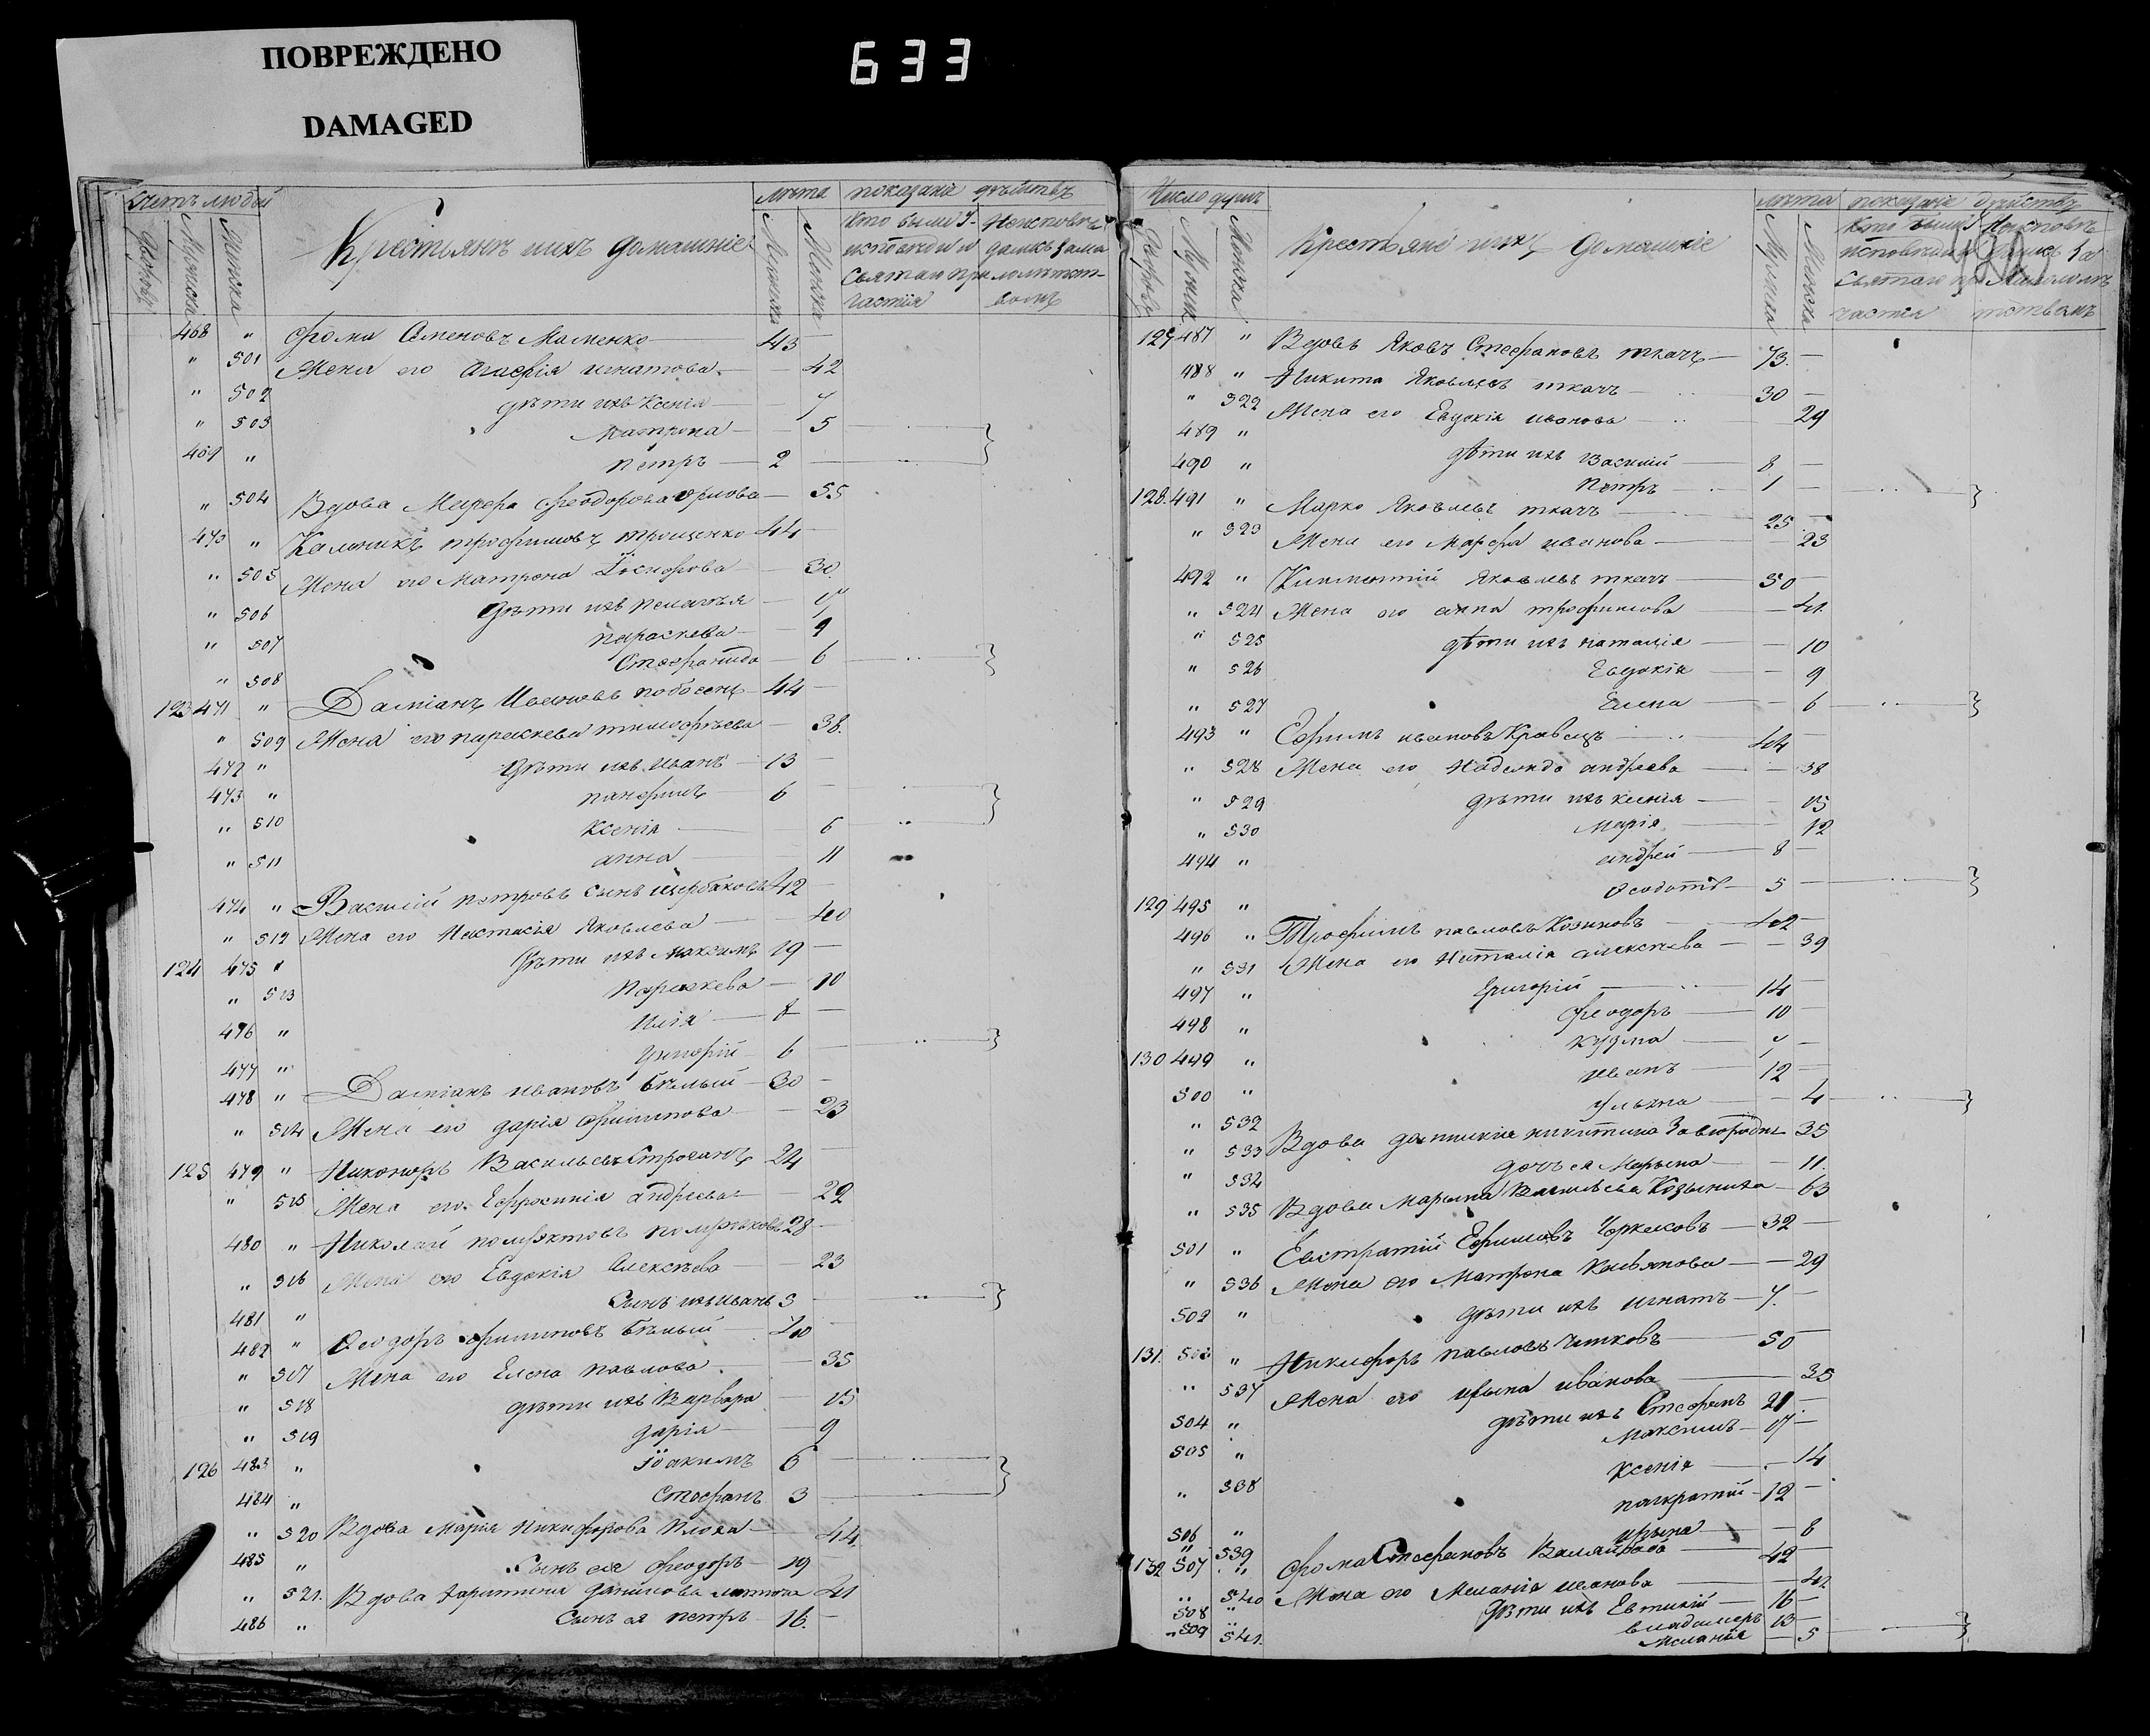 ПОВРЕЖДЕНО
DAMAGED
633
Счетъ людей
Крестьянъ и ихъ домашніе
лѣта
показаніе дѣйствъ
Кто были у исповѣди и святаго причастія
Неисповѣдались за малолѣтствомъ
468 " Фома Семеновъ Маменко 43
" 501 Жена его Агафія Игнатова 42
" 502 дѣти ихъ Ксенія 7
" 503 Матрона 5
469 " Петръ 2
" 504 Вдова Марфа Феодорова 55
470 " Трофимовъ Трощенко 44
" 505 Жена его Матрона Іосифова 30
" 506 дѣти ихъ Пелагія
" 507 Параскева 9
" 508 Стефанида 6
123 471 " Даміанъ Ивановъ 44
" 509 Жена его Параскева Тимофѣева 38
472 " дѣти ихъ Иванъ 13
473 " 6
" 510 Ксенія 6
" 511 Анна 11
474 " Василій Петровъ сынъ Щербаковъ 42
" 512 Жена его Настасія Яковлева 40
124 475 " дѣти ихъ Максимъ 19
" 513 Параскева 10
476 " Илія 8
477 " Григорій 6
478 " Даміанъ Ивановъ Бѣлый 30
" 514 Жена его Дарія Филипова 23
125 479 " Никоноръ Васильевъ 24
" 515 Жена его Ефросинія Андреева 22
480 " Николай 28
" 516 Жена его Евдокія Алексѣева 23
481 " Сынъ ихъ Иванъ 3
482 " Феодоръ Филиповъ Бѣлый 40
" 517 Жена его Елена Павлова 35
" 518 дѣти ихъ Варвара 15
" 519 Дарія 9
126 483 " Іоакимъ 6
484 " Стефанъ 3
" 520 Вдова Марія Никифорова 44
485 " Сынъ ея Феодоръ 19
" 521 Вдова Харитина Данилова 41
486 " Сынъ ея Петръ 16
Число душъ
Крестьяне и ихъ домашніе
лѣта
показаніе дѣйствъ
Кто были у исповѣди и святаго причастія
127 487 " Вдовъ Яковъ Стефановъ Ткачъ 73
488 " Никита Яковлевъ Ткачъ 30
" 522 Жена его Евдокія Иванова 29
489 " дѣти ихъ Василій 8
490 " Петръ 1
128 491 " Марко Яковлевъ Ткачъ 25
" 523 Жена его Марфа Иванова 23
492 " Яковлевъ Ткачъ 50
" 524 Жена его Анна Трофимова 41
" 525 дѣти ихъ Наталія 10
" 526 Евдокія 9
" 527 Елена 6
493 " Ефимъ Ивановъ Кравецъ 44
" 528 Жена его Надежда Андреева 38
" 529 дѣти ихъ Ксенія 15
" 530 Марія 12
494 " Андрей 8
129 495 " 5
496 " Трофимъ Павловъ Козиновъ 42
" 531 Жена его Наталія Алексѣева 39
497 " Григорій 14
498 " Феодоръ 10
130 499 " Кузма 7
500 " Иванъ 12
" 532 Ульяна 4
" 533 Вдова Никитина 35
" 534 дочь ея Марына 11
" 535 Вдова Марына Васильева 63
501 " Евстратій Ефимовъ Черкесовъ 32
" 536 Жена его Матрона 29
502 " дѣти ихъ Игнатъ 7
131 503 " Никифоръ Павловъ 50
" 537 Жена его Ирына Иванова 35
504 " дѣти ихъ Стефанъ 21
505 " Максимъ 17
" 538 Ксенія 14
506 " Панкратій 12
" 539 Ирына 8
132 507 " Фома Стефановъ 42
" 540 Жена его Меланія Иванова 42
508 " дѣти ихъ Евтихій 16
509 " Владимеръ 13
" 541 Меланія 5